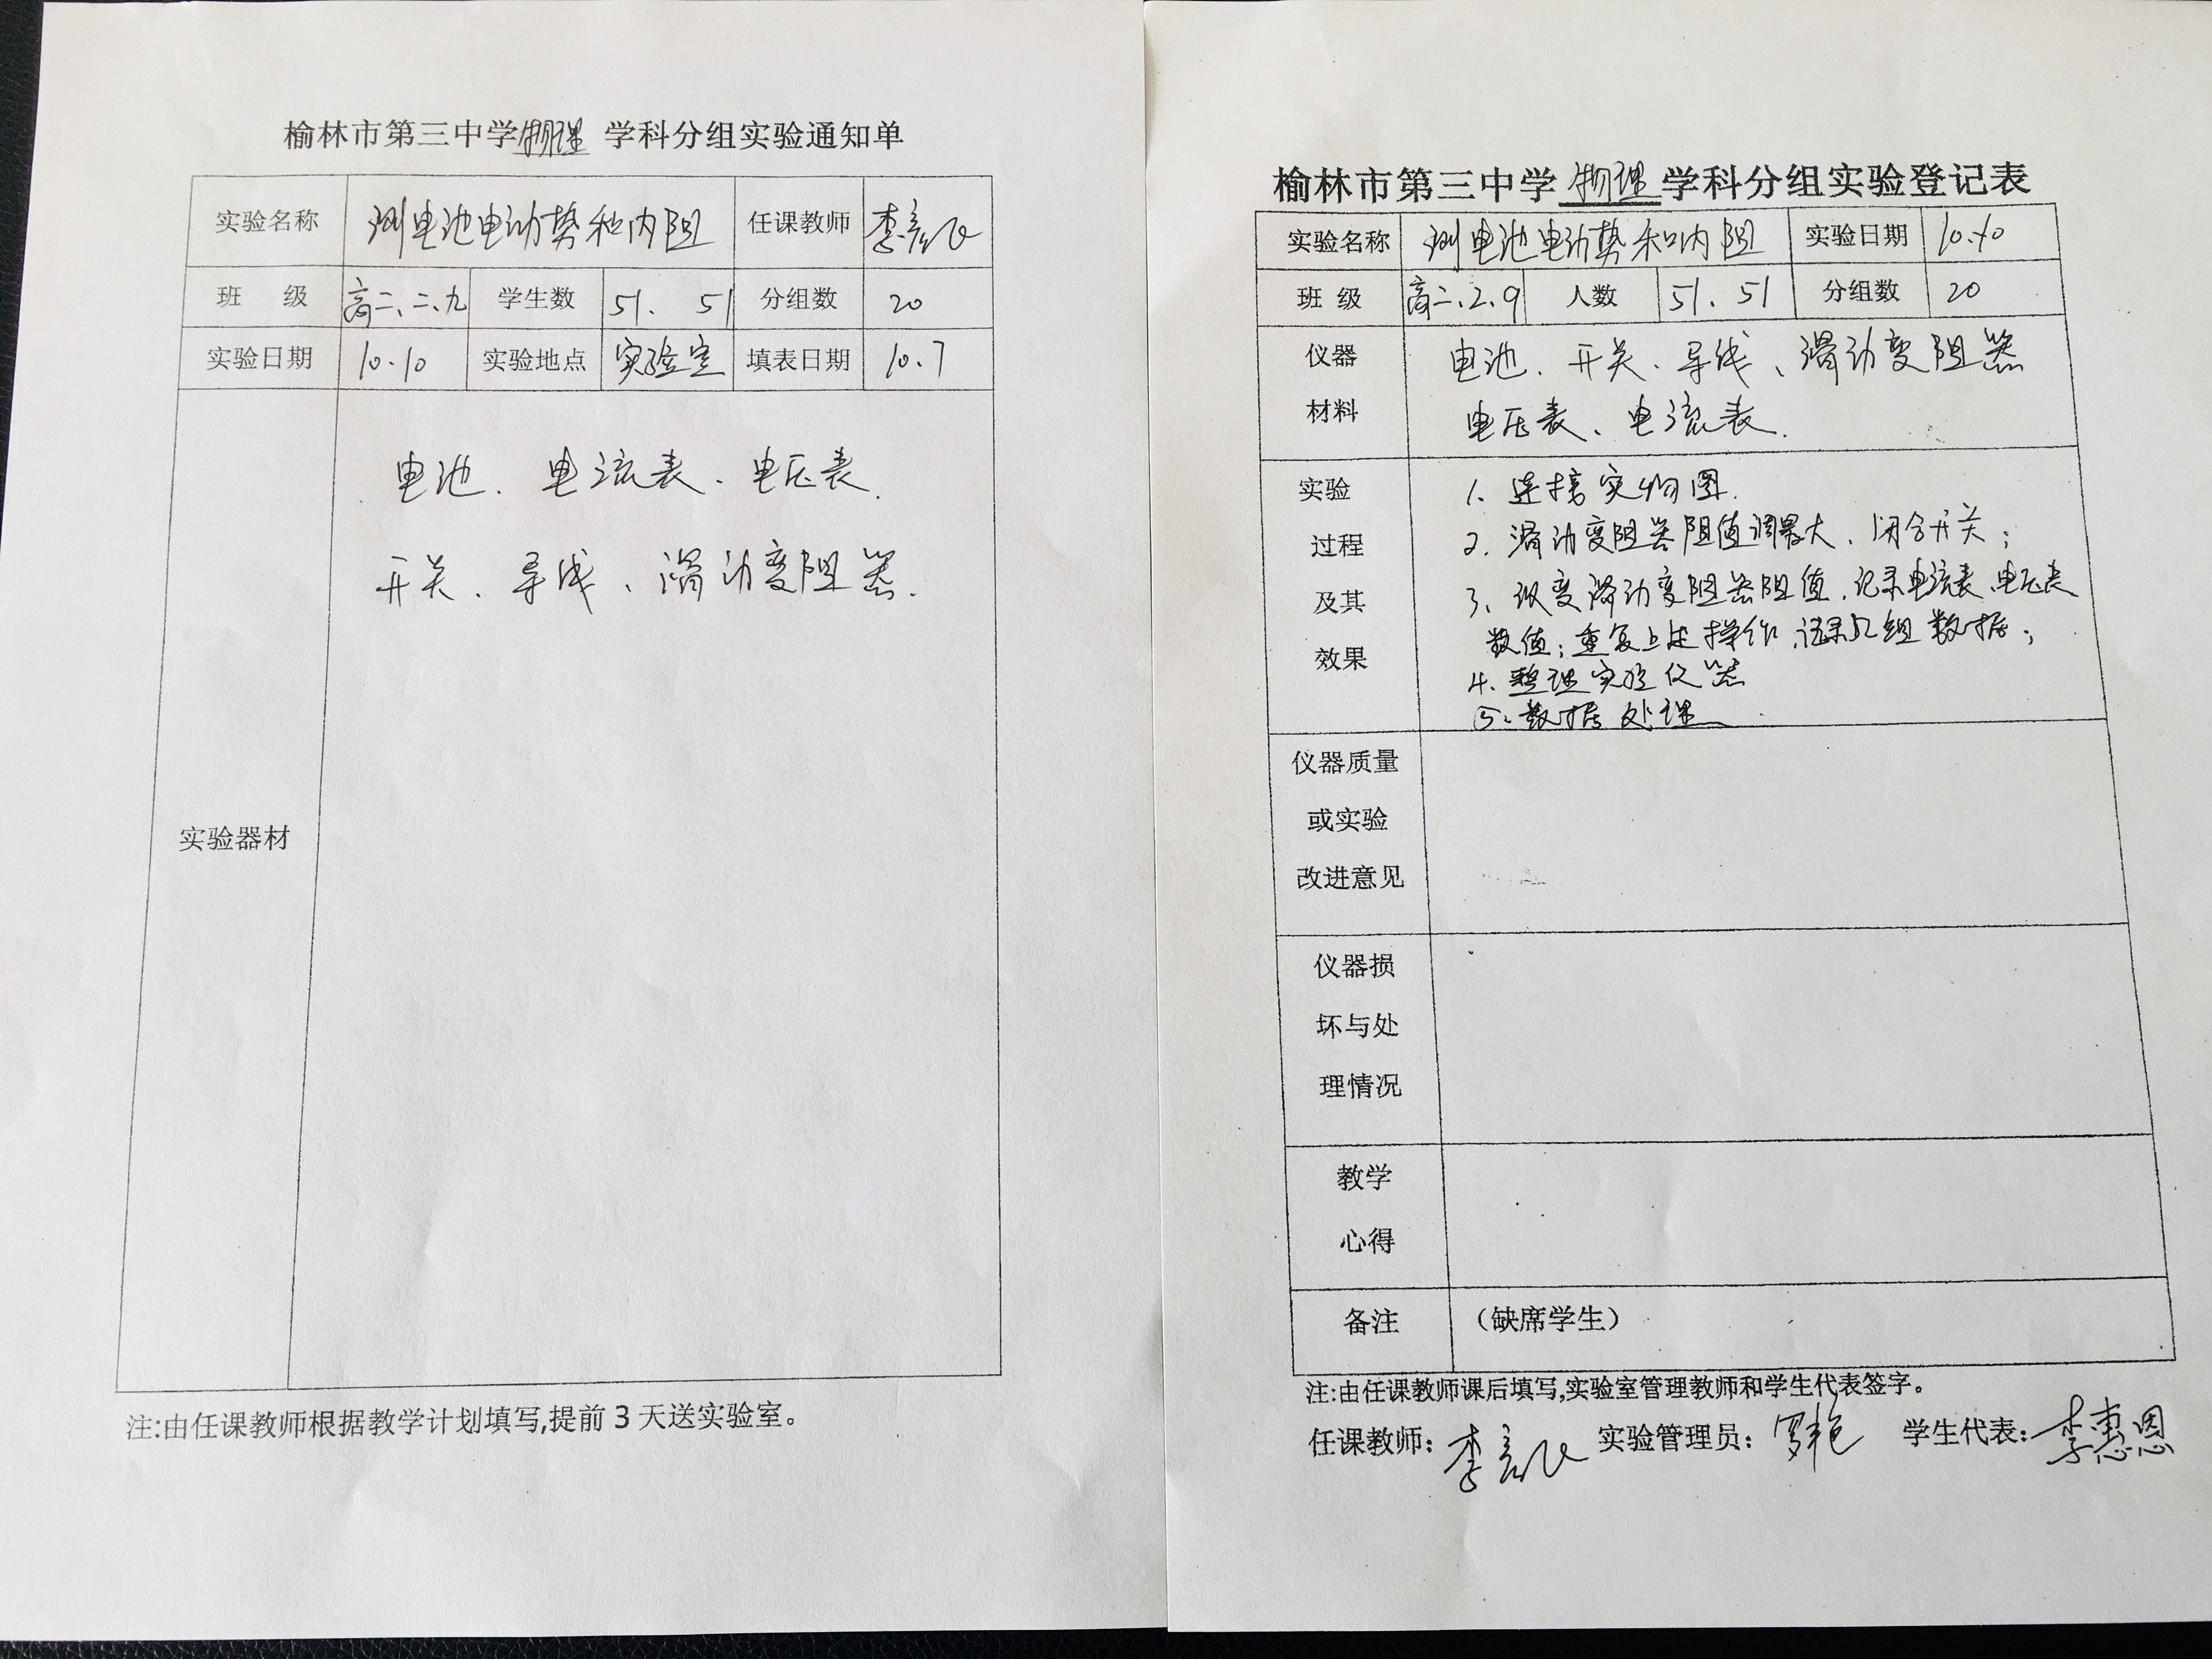 榆林市第三中学物理 学科分组实验通知单
实验名称 测电池电动势和内阻 任课教师 李
班 级 高二、二、九 学生数 51. 51 分组数 20
实验日期 10.10 实验地点 实验室 填表日期 10.7
实验器材
电池、电流表、电压表.
开关、导线、滑动变阻器.
注:由任课教师根据教学计划填写,提前3天送实验室。
榆林市第三中学 物理 学科分组实验登记表
实验名称 测电池电动势和内阻 实验日期 10.10
班 级 高二、2、9 人数 51. 51 分组数 20
仪器 电池、开关、导线、滑动变阻器
材料 电压表、电流表.
实验 1. 连接实物图.
过程 2. 滑动变阻器阻值调最大、闭合开关;
及其 3、改变滑动变阻器阻值,记录电流表、电压表
数值;重复上述操作,记录几组数据;
效果 4. 整理实验仪器
5. 数据处理
仪器质量
或实验
改进意见
仪器损
坏与处
理情况
教学
心得
备注 (缺席学生)
注:由任课教师课后填写,实验室管理教师和学生代表签字。
任课教师: 李 实验管理员: 罗艳 学生代表: 李惠恩